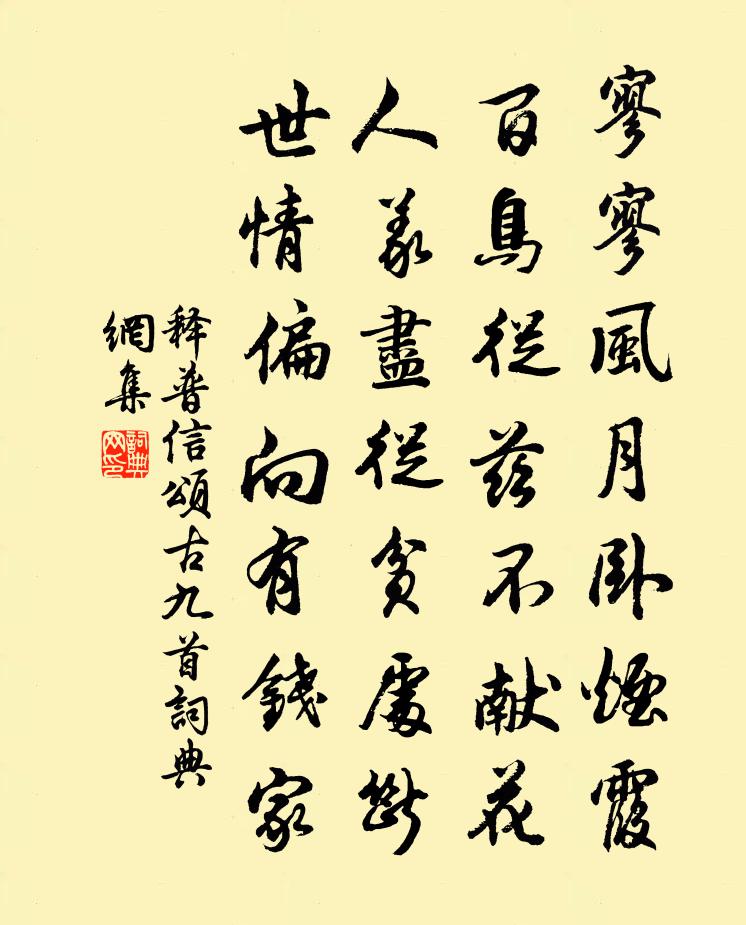 寥寥風月卧煙霞
百鳥從茲不献花
人義盡從貧處斷
世情偏向有錢家
释普信頌古九首詞典
網集
詞典
网印